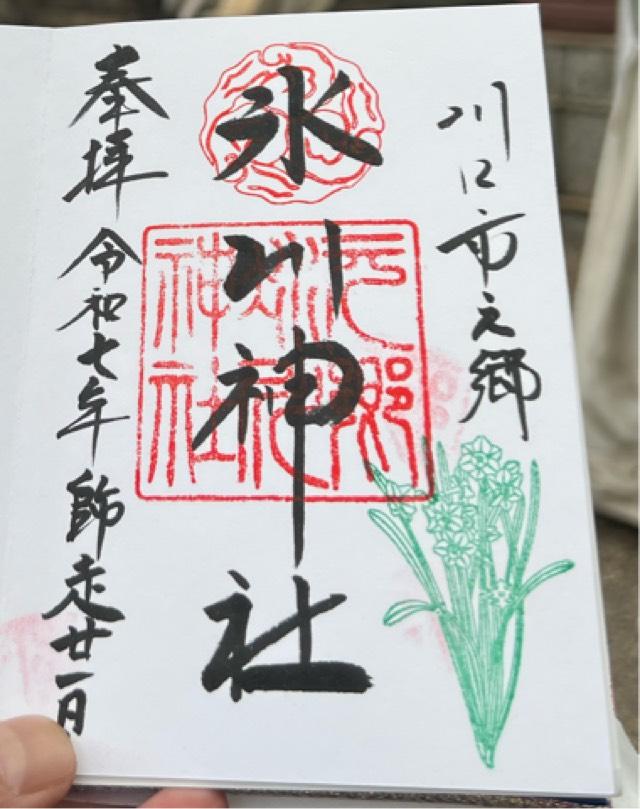 川口市元郷
氷川神社
奉拝 令和七年 師走廿一日
元郷
氷川
神社